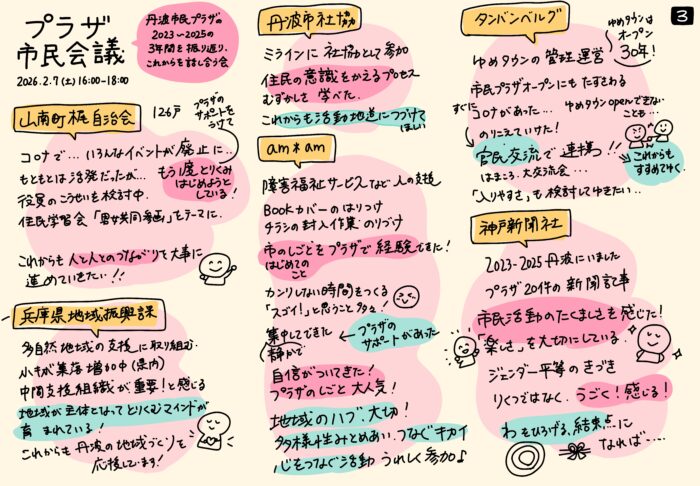 プラザ
市民会議
2026.2.7(土)16:00-18:00
丹波市民プラザの
2023〜2025の
3年間を振り返り、
これからを話し合う会
3
山南町梶自治会
126戸
プラザの
サポートを
うけて
コロナで…いろんなイベントが廃止に…
もともとは活発だったが…
もう1度とりくみ
はじめようと
している!
役員のこうせいを検討中.
住民学習会「男女共同参画」をテーマに.
これからも人と人とのつながりを大事に
進めていきたい!!
兵庫県地域振興課
多自然地域の支援に取り組む.
小さな集落増加中(県内)
中間支援組織が重要!と感じる
地域が主体となってとりくむマインドが
育まれている!
これからも丹波の地域づくりを
応援しています!
丹波市社協
ミラインに社協として参加
住民の意識をかえるプロセス
むずかしさ 学べた.
これからも活動地道につづけて
ほしい
am*am
障害福祉サービスなど人の支援
BOOKカバーのはりつけ
チラシの封入作業のりづけ
市のしごとをプラザで経験できた!
はじめての
こと
カンリしない時間をつくる
「スゴイ!」と思うこと多々!
集中してできた
静かで
プラザの
サポートがあった
自信がついてきた!
プラザのしごと大人気!
地域のハブ、大切!
多様性みとめあい、つなぐキカイ
心をつなぐ活動 うれしく参加♪
タンバンベルグ
ゆめタウンは
オープン
30年!
ゆめタウンの管理運営
市民プラザオープンにもたずさわる
コロナがあった… ゆめタウンopenできない
ことも…
すぐに
のりこえていけた!
官民交流で連携!!
これからも
すすめてゆく.
はまころ、大交流会…
「入りやすさ」も検討してゆきたい…
神戸新聞社
2023-2025丹波にいました
プラザ20件の新聞記事
市民活動のたくましさを感じた!
「楽しさ」を大切にしている.
ジェンダー平等のきづき
りくつではなく、うごく!感じる!
わもひろげる、結束点…に
なれば…